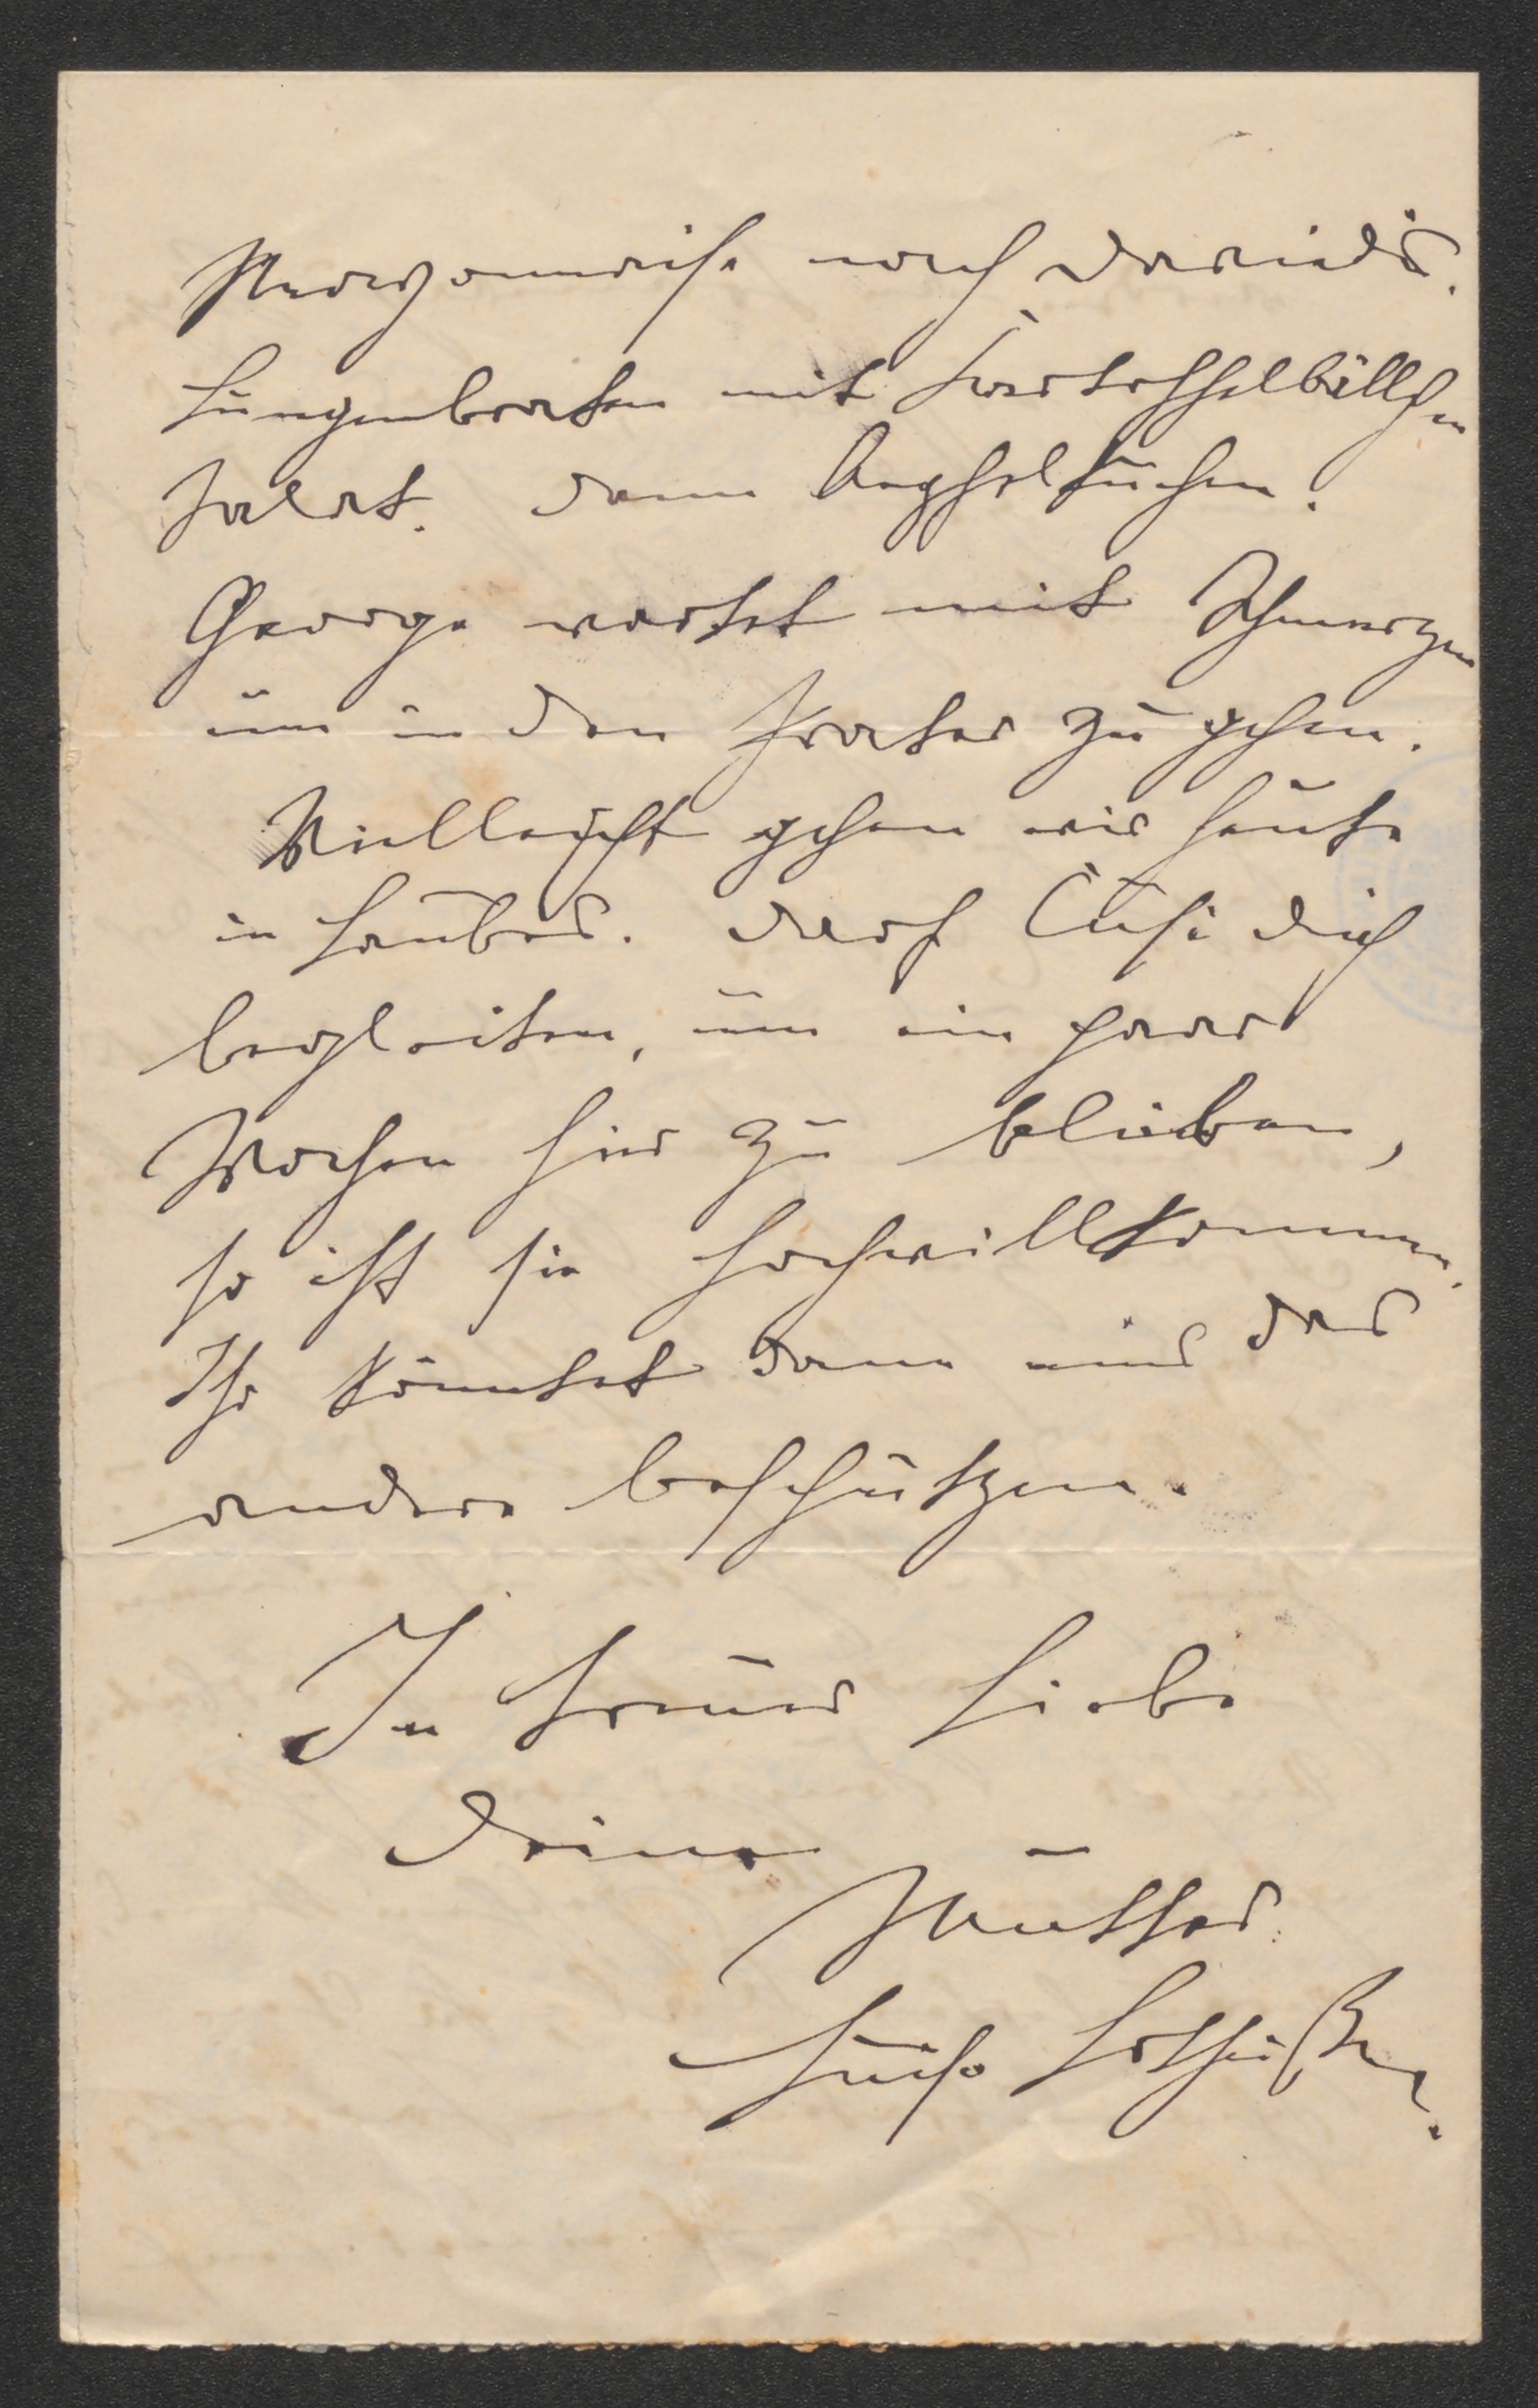 nach
Lungenbraten mit Kartoffelbällchen
Salat. dann Aepfelkuchen.
George wartet mit Schmerzen
um in den Prater zu gehen.
Vielleicht gehen wir heute
in Lauber. darf Cusi dich
begleiten, um ein paar
Wochen hier zu bleiben,
so ist sie hochwillkommen.
Ihr könntet dann eins das
andere beschützen.
In treuer Liebe
Deine
Mutter
Luise